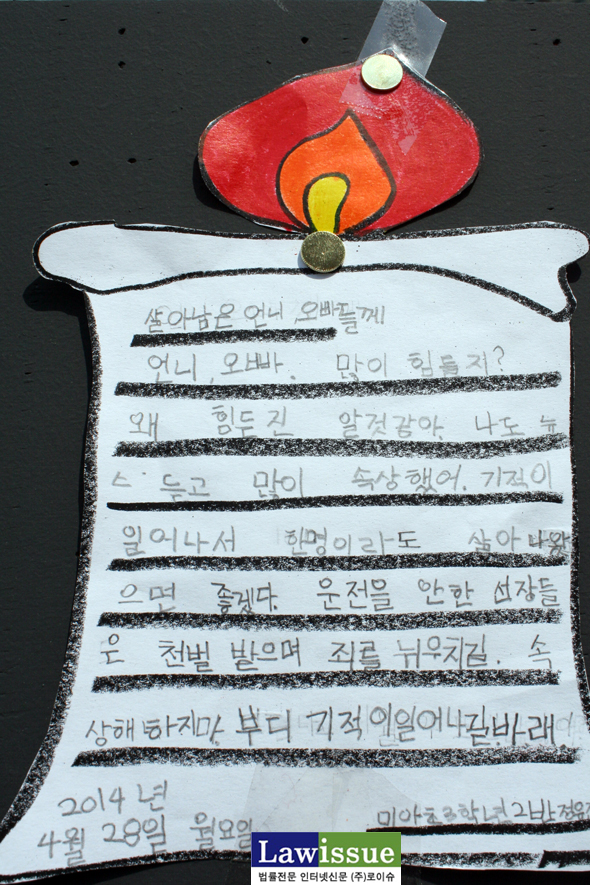 살아남은 언니,오빠들께
언니, 오빠. 많이 힘들지?
왜 힘든진 알것같아, 나도 뉴
스 듣고 많이 속상했어. 기적이
일어나서 한명이라도 살아 나왔
으면 좋겠다. 운전을 안한 선장들
은 천벌 받으며 죄를 뉘우치길. 속
상해 하지마, 부디 기적이일어나길,바래
2014년
4월 28일 월요일
미아초 3학년 2반
Lawissue
법률전문 인터넷신문 (주)로이슈